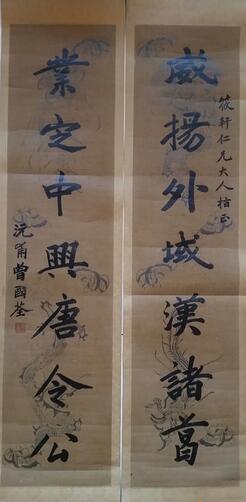 筱軒仁兄大人指正
威揚外域漢諸葛
業定中興唐令公
沅甫曾國荃